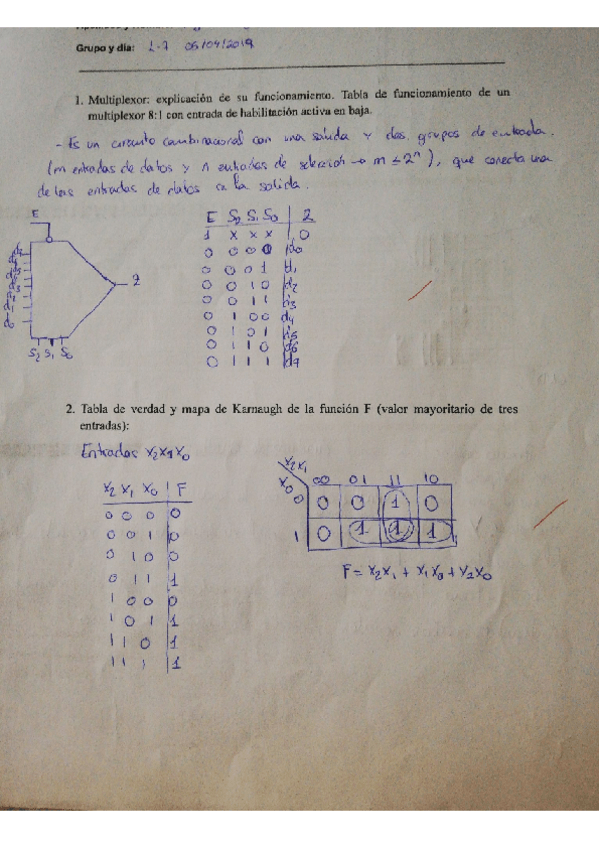 Grupo y día: L-7 05/04/2019
1. Multiplexor: explicación de su funcionamiento. Tabla de funcionamiento de un
multiplexor 8:1 con entrada de habilitación activa en baja.
- Es un circuito combinacional con una salida y dos grupos de entrada.
(m entradas de datos y n entradas de selección → m ≤ 2^n), que conecta una
de las entradas de datos a la salida.
E
Z
S2 S1 S0
E S2 S1 S0 | Z
1 x x x | 0
0 0 0 0 | d0
0 0 0 1 | d1
0 0 1 0 | d2
0 0 1 1 | d3
0 1 0 0 | d4
0 1 0 1 | d5
0 1 1 0 | d6
0 1 1 1 | d7
2. Tabla de verdad y mapa de Karnaugh de la función F (valor mayoritario de tres
entradas):
Entradas X2X1X0
X2 X1 X0 | F
0 0 0 | 0
0 0 1 | 0
0 1 0 | 0
0 1 1 | 1
1 0 0 | 0
1 0 1 | 1
1 1 0 | 1
1 1 1 | 1
X2X1
X0 00 01 11 10
0 0 0 1 0
1 0 1 1 1
F = X2X1 + X1X0 + X2X0